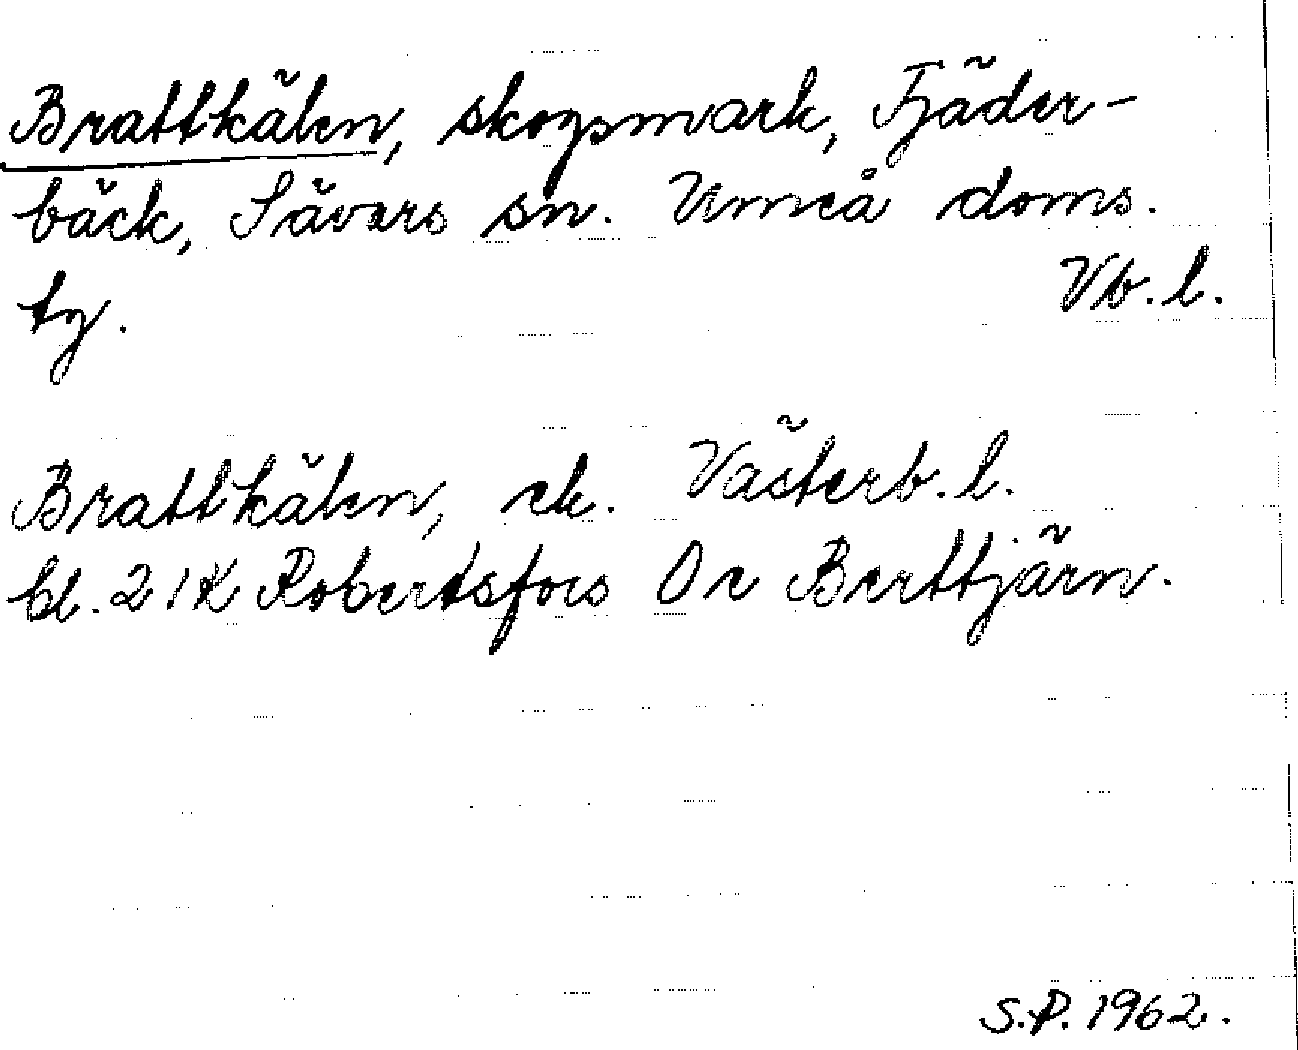 Brattkälen, skogsmark, Fjäder-
bäck, Sävars sn. Umeå doms.
tg. Vb. l.
Brattkälen, ek. Västerb. l.
bl. 21K Robertsfors On Berttjärn.
S.P. 1962.